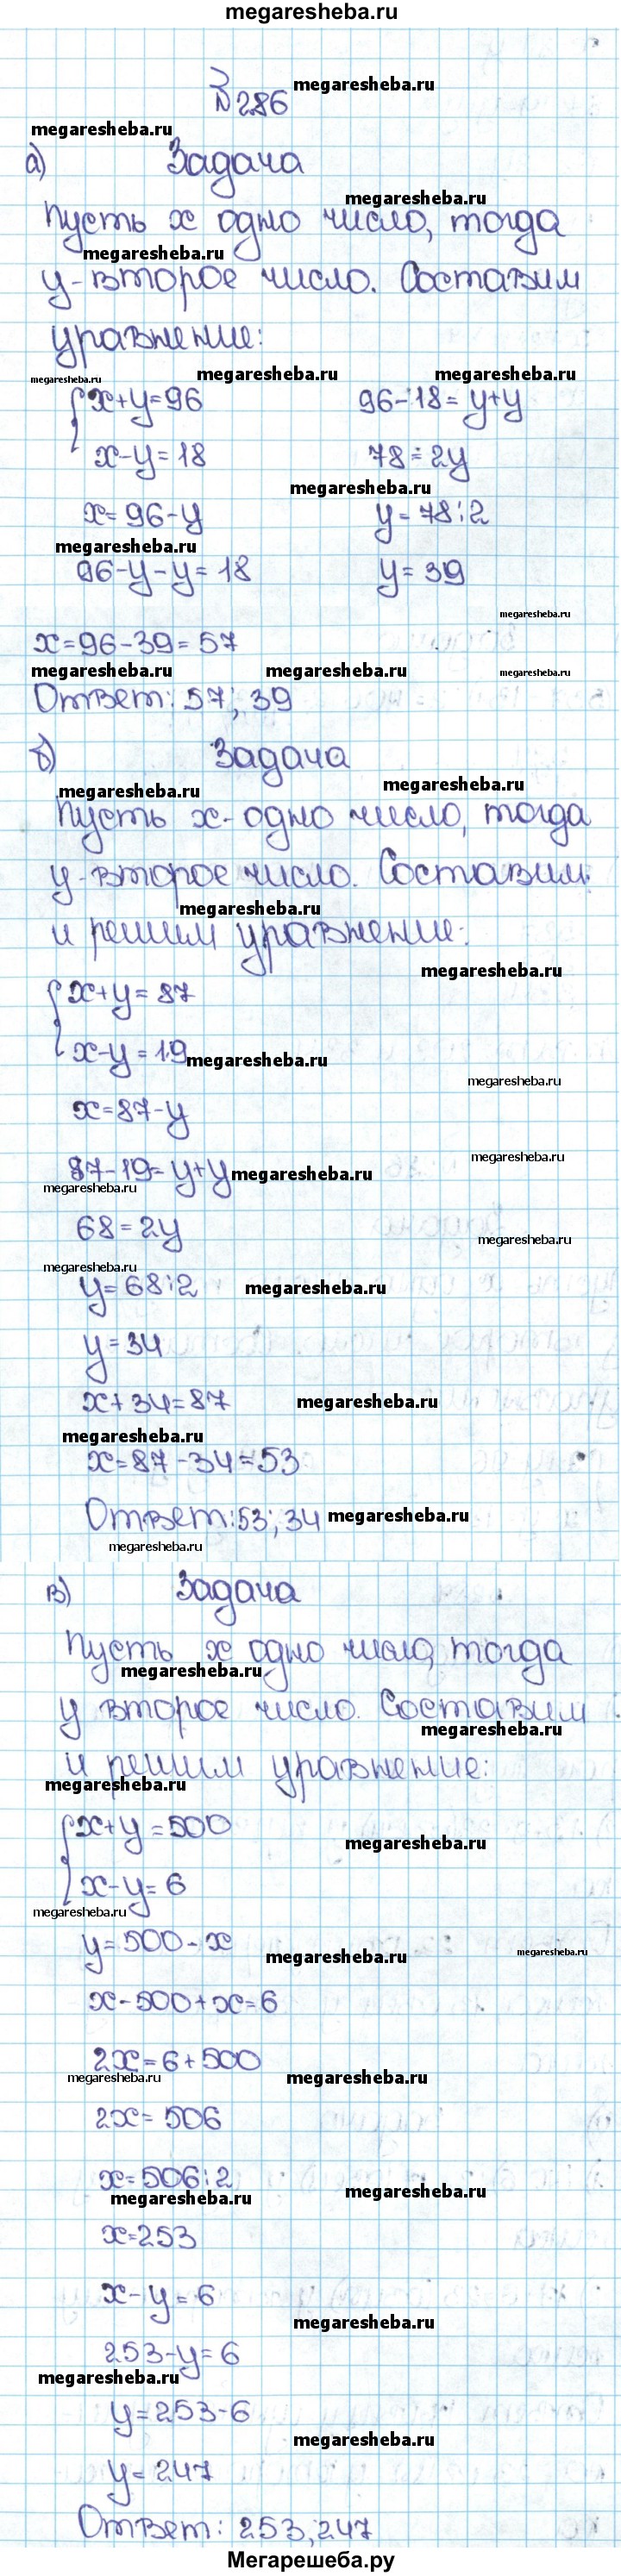 megaresheba.ru
№286 megaresheba.ru
megaresheba.ru
а) Задача
megaresheba.ru
Пусть x одно число, тогда
megaresheba.ru
y-второе число. Составим
уравнение:
megaresheba.ru megaresheba.ru megaresheba.ru
x+y=96 96-18=y+y
x-y=18 78=2y
megaresheba.ru
x=96-y y=78:2
megaresheba.ru
96-y-y=18 y=39
megaresheba.ru
x=96-39=57
megaresheba.ru megaresheba.ru megaresheba.ru
Ответ: 57; 39
б) Задача
megaresheba.ru megaresheba.ru
Пусть x-одно число, тогда
y-второе число. Составим
megaresheba.ru
и решим уравнение:
megaresheba.ru
x+y=87
x-y=19 megaresheba.ru
megaresheba.ru
x=87-y
megaresheba.ru
87-19=y+y megaresheba.ru
megaresheba.ru
68=2y
megaresheba.ru
megaresheba.ru
y=68:2 megaresheba.ru
y=34
x+34=87 megaresheba.ru
megaresheba.ru
x=87-34=53
Ответ: 53; 34 megaresheba.ru
megaresheba.ru
в) Задача
Пусть x одно число, тогда
megaresheba.ru
y второе число. Составим
megaresheba.ru
и решим уравнение:
megaresheba.ru
x+y=500
megaresheba.ru
x-y=6
megaresheba.ru
y=500-x
megaresheba.ru megaresheba.ru
x-500+x=6
2x=6+500
megaresheba.ru megaresheba.ru
2x=506
x=506:2
megaresheba.ru megaresheba.ru
x=253
x-y=6
megaresheba.ru
253-y=6
megaresheba.ru
y=253-6
megaresheba.ru
y=247
Ответ: 253, 247
Мегарешеба.ру